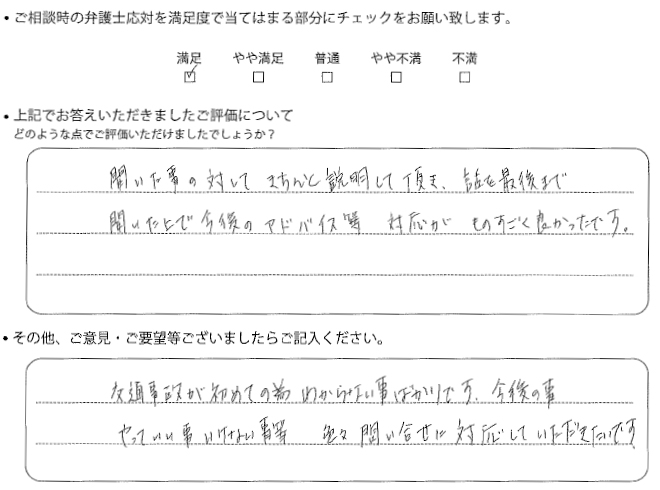 • ご相談時の弁護士応対を満足度で当てはまる部分にチェックをお願い致します。
満足 やや満足 普通 やや不満 不満
☑ □ □ □ □
• 上記でお答えいただきましたご評価について
どのような点でご評価いただけましたでしょうか?
聞いた事の対して きちんと説明して頂き、話を最後まで
聞いた上で今後のアドバイス等 対応が ものすごく良かったです。
• その他、ご意見・ご要望等ございましたらご記入ください。
交通事故が初めての為 わからない事ばかりです、今後の事
やっていい事いけない事等 色々問い合せに対応していただきたいです